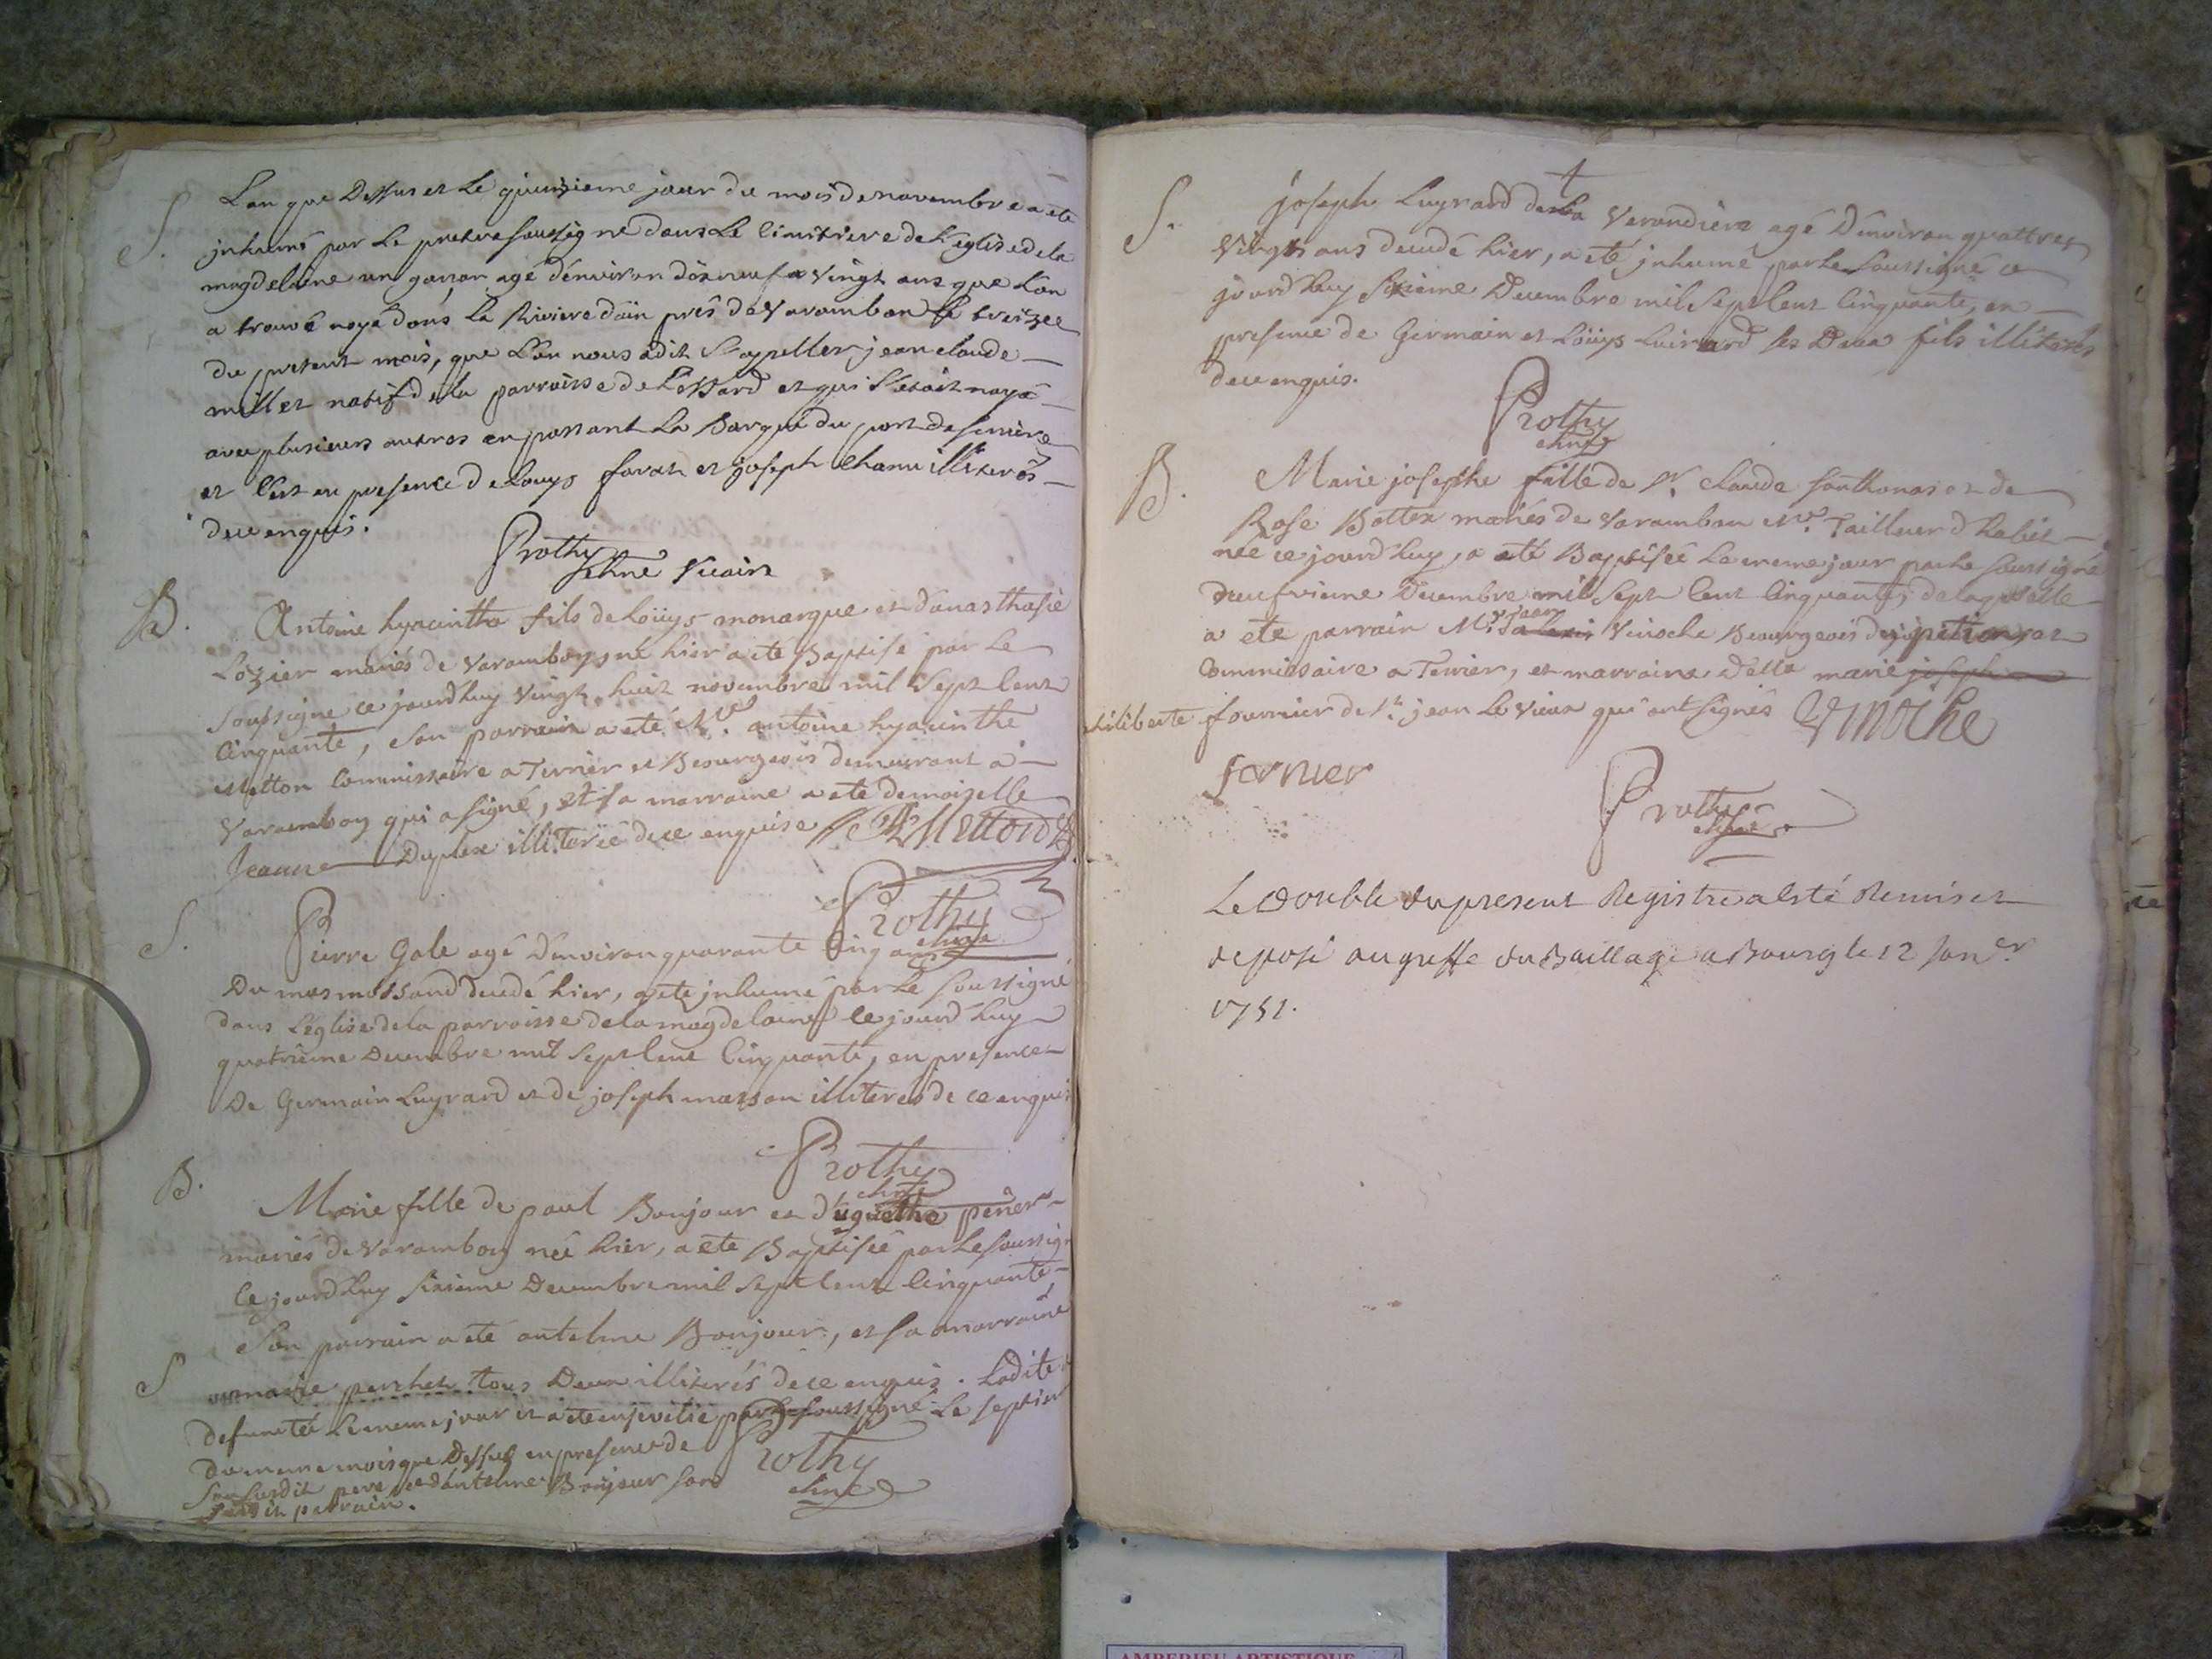 S.
L'an que Dessus et Le quinzieme jour du mois de novembre a ete
inhumé par Le pretre soussigné dans Le Cimitiere de L'églisedela
magdelaine un garçon agé d'environ dix neuf a vingt ans que L'on
a trouvé noyé dans La Riviere d'ain près de Varambon Le treize
du present mois, que L'on nous a dit S'appeller jean claude
millet natif de la parroisse de et qui S'etait noyé
avec plusieurs autres en passant La Barque du port de
et C'est en presence de Louys et joseph illiterés
de ce enquis.
Prothy
Vicaire
B.
Antoine hyacinthe fils de Loüys monarque et d'anasthasie
Lozier mariés de Varamboy né hier a eté Baptisé par Le
Soussigné ce jourdhuy vingt huit novembre mil Sept Cent
Cinquante, Son parrain a eté Mre. antoine hyacinthe
Metton Commissaire a Terrier et Bourgeois demeurant a
Varamboy qui a signé, et Sa marraine a ete demoiselle
Jeanne Duplex illiterée de ce enquise Metton
Prothy
S.
Pierre Gole agé D'environ quarante Cinq ans
Du mas decedé hier, a ete inhumé par Le Soussigné
dans L'église de la parroisse de la magdelaine Ce jourd'huy
quatrieme Decembre mil Sept Cent Cinquante, en presence
De Germain Luyrard et de joseph masson illiterés de ce enquis
Prothy
B.
Marie fille de paul Bonjour et
mariés de Varamboy née hier, a ete Baptisée par Le Soussigné
Ce jourdhuy Sixieme Decembre mil Sept Cent Cinquante
Son parrain a eté antelme Bonjour, et Sa marraine
S
marie tous Deux illiterés de ce enquis. Ladite
defunctée Le meme jour et a ete ensevelie par Le soussigné Le Septieme
du meme mois que Dessus en presence de
Son Susdit pere et d'antelme Bonjour Son
Susdit parrain.
Prothy
S.
joseph Luyrard de La Verandiere agé D'environ quattres
Vingts ans decedé hier, a eté inhumé par Le Soussigné ce
jourdhuy Sixieme Decembre mil Sept Cent Cinquante, en
presence de Germain et Loüys Luirard Ses Deux fils illiterés
de ce enquis.
Prothy
B.
Marie josephe fille de Sr. Claude Santhonas et de
Rose Bottex mariés de Varambon Me. Tailleur d'habit
née ce jourd'huy, a eté Baptisée Le meme jour par Le soussigné
neufvieme Decembre mil Sept Cent Cinquante, de laquelle
a eté parrain Mr. jean Vinoche Bourgeois et
Commissaire a Terrier, et marraine Delle marie joseph
philiberte fournier de St. jean Le Vieux qui ont Signés Vinoche
fornier
Prothy
Le Double du present Registre a esté Remis et
deposé au greffe du Baillage a Bourg le 12 Janer
1751.
AMBERIEU ARTISTIQUE